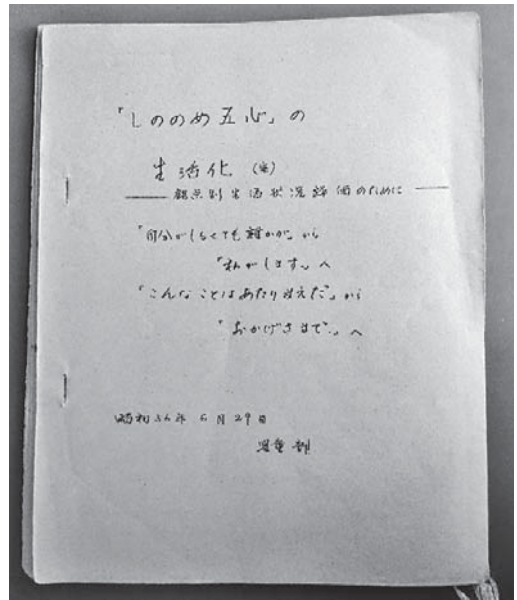 「しののめ五心」の
生活化(案)
――― 観点別生活状況評価のために ―――
「自分がしなくても誰かが」から
「私がします」へ
「こんなことはあたりまえだ」から
「おかげさまで」へ
昭和56年6月29日
児童部